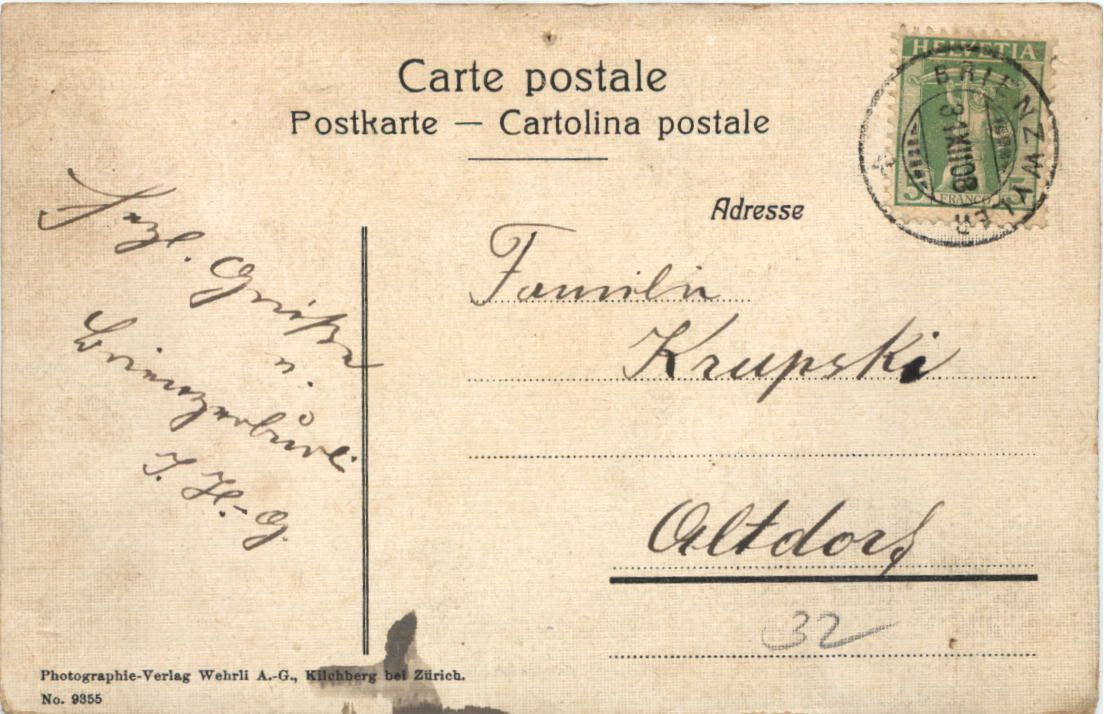 Carte postale
Postkarte — Cartolina postale
HELVETIA
BRIENZWYLER
31 XII 08
5
FRANCO
Adresse
Hrzl. Grüsse
u.
I. H.-G.
Familie
Krupski
Altdorf
32
Photographie-Verlag Wehrli A.-G., Kilchberg bei Zürich.
No. 9355